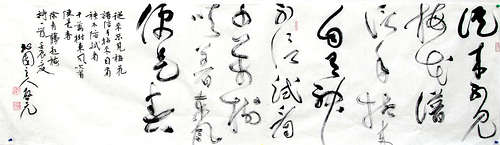 從來不見
梅花譜
信手拈來
自有神
不信試看
千萬樹
吹着東風
便是春
從來不見梅花
譜信手拈來自有
神不信試看
便是春
徐青藤題梅
詩一首